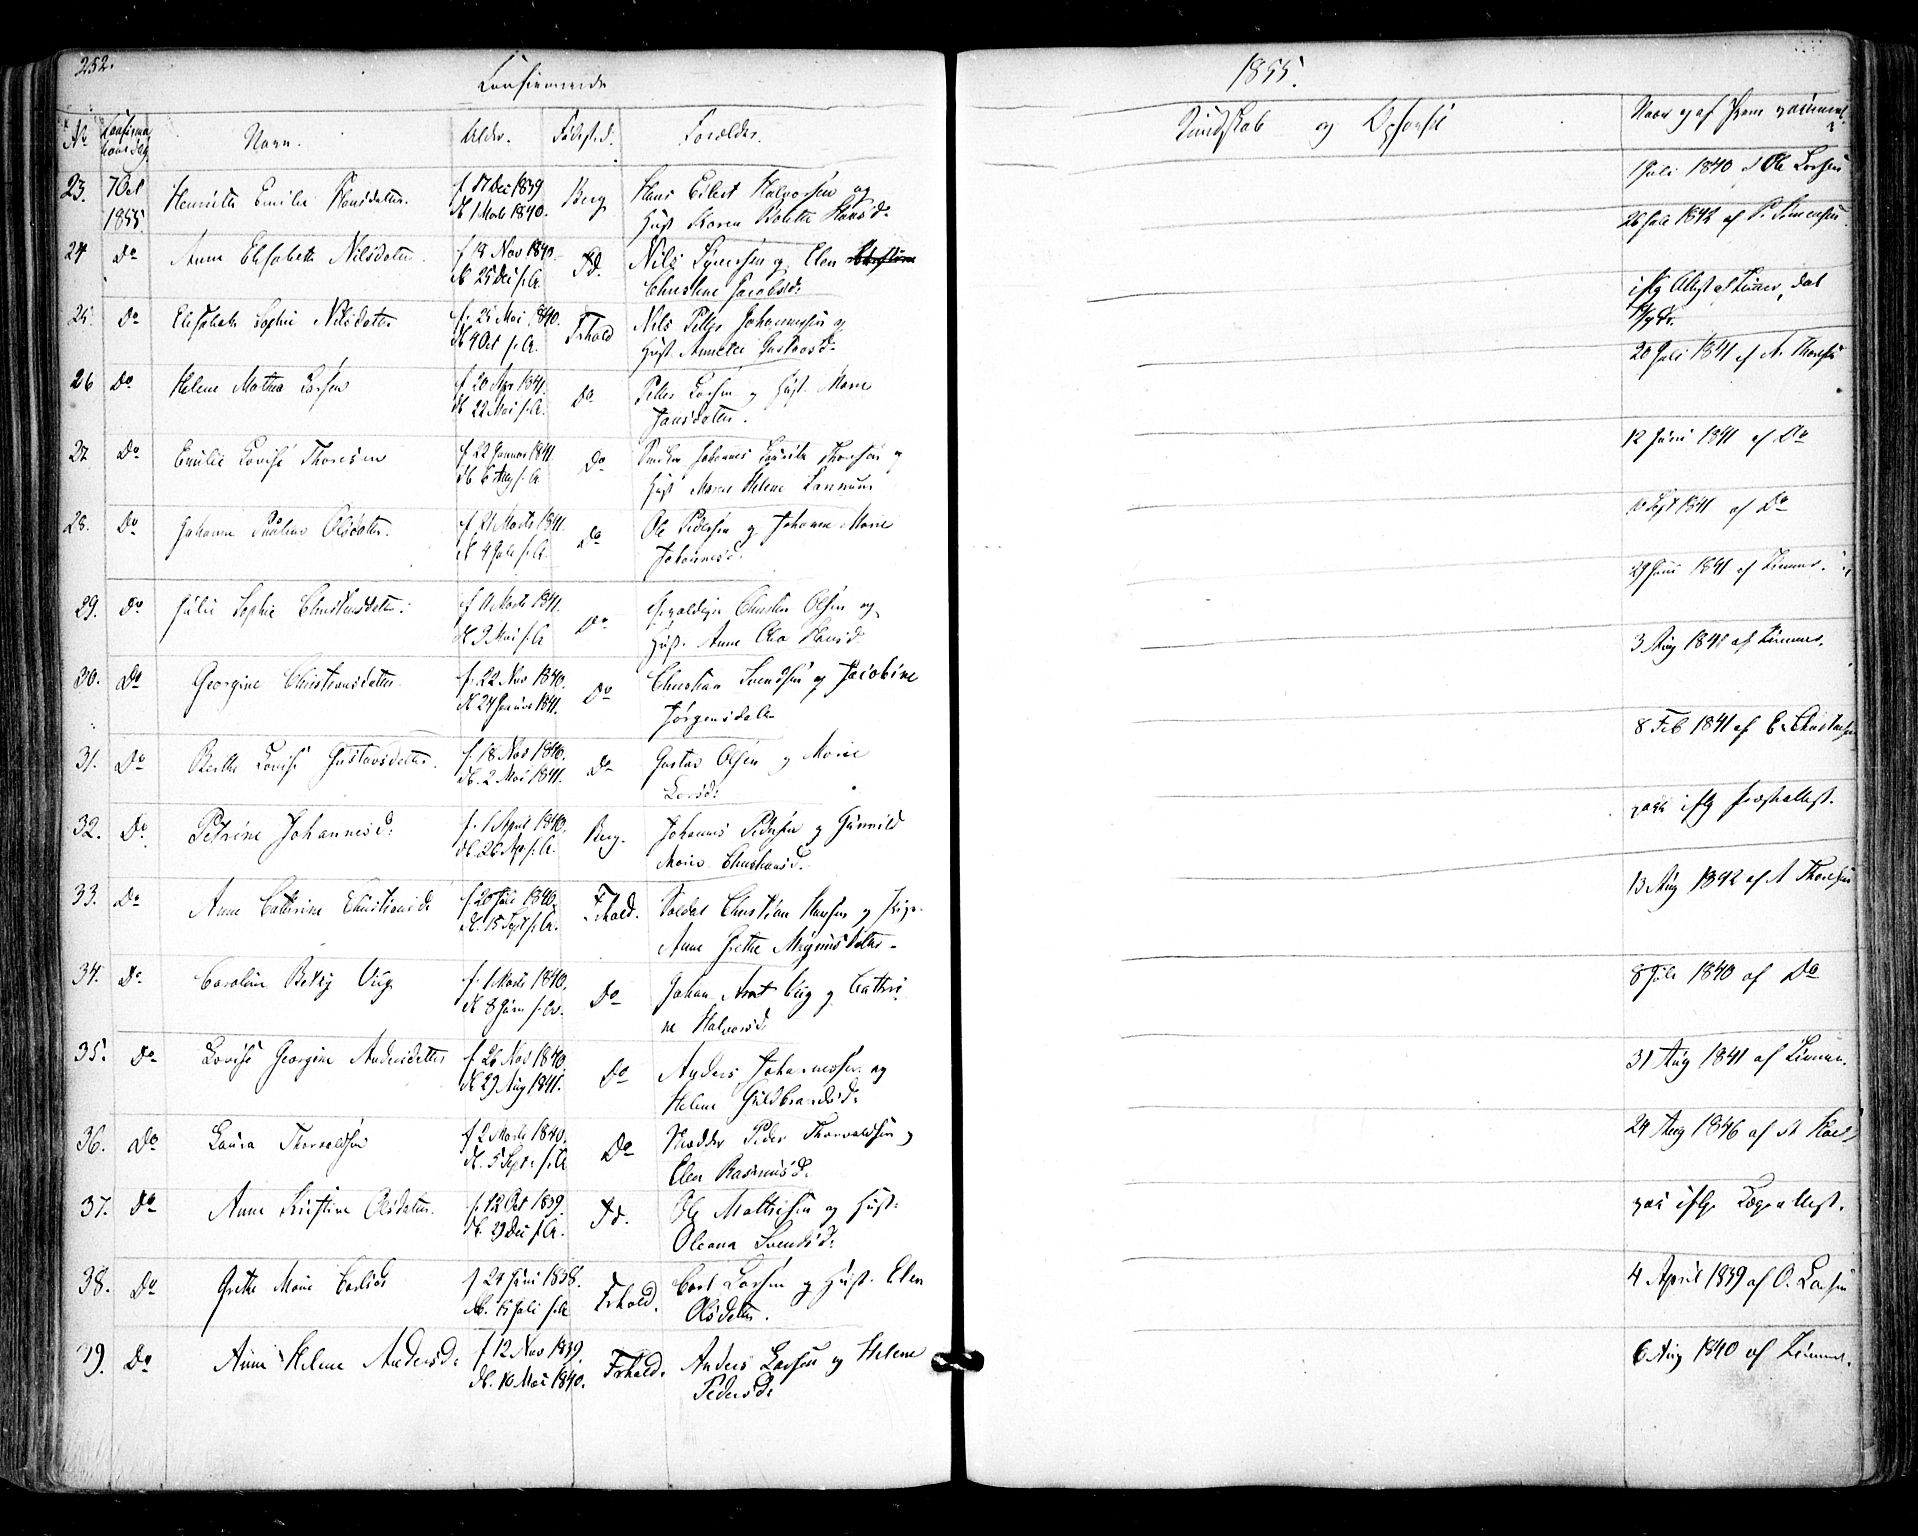 252.
Confirmerede
1855.
No Confirma
tions Dag Navn. Alder. Fødest.d. Forældre.
Kundskab og Opførsel
Naar og af hvem vaccineret
23. 7 Oct
1855. Henriette Emilie Hansdatter. f. 17 Dec 1839
db. 1 Marts 1840. Berg Hans Eilert Halvorsen og
Hust. Karen Bolette Hansd:
1 Juli 1840 af Ole Larsen
24 Do Anne Elisabeth Nilsdatter. f 19 Nov 1840.
db 25 Dec s. A. Id. Nils Syversen og Elen
Christine Jacobsd:
26 Juli 1842 af P. Simensen.
25. Do Elisabeth Sophie Nilsdatter f. 25 Mai 1840.
db 4 Oct s. A. Frhald Nils Petter Johannesen og
Hust. Annette Gustavsd:
iflg Attest af Linner, dat
20 Juli 1841 af A. Thoresen
26 Do Helene Mathea Larsen f 20 Apr 1841.
db 22 Mai s. A. Do Petter Larsen og Hust. Marie
Hansdatter.
27 Do Emilie Lovise Thoresen f 22 Januar 1841
db 6 Aug s. A Do Johannes Lauritz Thoresen og
Hust Maren Helene
12 Juni 1841 af Do
28. Do Johanne Pauline Olsdatter. f 21 Marts 1841.
db 4 Juli s. A. Do Ole Pedersen og Johanne Marie
Johannesd.
10 Sept 1841 af Do
29. Do Julie Sophie Christensdatter. f 11 Marts 1841.
db 9 Mai s. A Do Christen Olsen og
Hust. Anne Olea Hansd
29 Juni 1841 af Linner.
30. Do Georgine Christiansdatter. f. 22 Nov 1840.
db 24 Januar 1841. Do Christian Svendsen og Jacobine
Jørgensdatter
3 Aug 1841 af Linner.
31. Do Berthe Lovise Gustavsdatter. f. 18 Nov 1840.
db. 2 Mai 1841. Do Gustav Olsen og Marie
Larsd:
8 Feb 1841 af C. Christensen
32. Do Petrine Johannesd: f. 1 April 1840.
db. 26 Apr s. A. Berg. Johannes Pedersen og Gunnild
Marie Christiansd.
vacc iflg Præsteattest.
33. Do Anne Cathrine Christiansd: f 20 Juli 1840.
db. 15 Sept s. A. Frhald. Soldat Christian Hansen og Pige
Anne Grethe Magnusdatter
13 Aug 1842 af A Thoresen
34. Do Caroline Betsy Vug f. 1 Marts 1840.
db 8 Juni s. A. Do Johan Arnt Vug og Cathri
ne Halvorsd
8 Juli 1840 af Do
35. Do Lovise Georgine Andersdatter f 26 Nov 1840.
db 29 Aug 1841. Do Anders Johannessen og
Helene Guldbrandsd:
31 Aug 1841 af Linner.
36. Do Laura Thorvaldsen f 2 Marts 1840.
db. 5 Sept. s. A Do Peder Thorvaldsen og
Elen Rasmusd:
24 Aug 1846 af
37. Do Anne Kristine Olsdatter. f. 12 Oct 1839.
db. 29 Dec s. A. Id. Ole Mathisen og Hust:
Oleana Svendsd:
vac iflg Lægeattest.
38. Do Grethe Marie Carlsd: f 24 Juni 1838.
db. 15 Juli s. A Frhald. Carl Larsen og Hust. Elen
Olsdatter.
4 April 1839 af O. Larsen
39. Do Anne Helene Andersd: f 12 Nov 1839.
db. 10 Mai 1840. Frhald. Anders Larsen og Helene
Pedersd:
6 Aug 1840 af Linner.